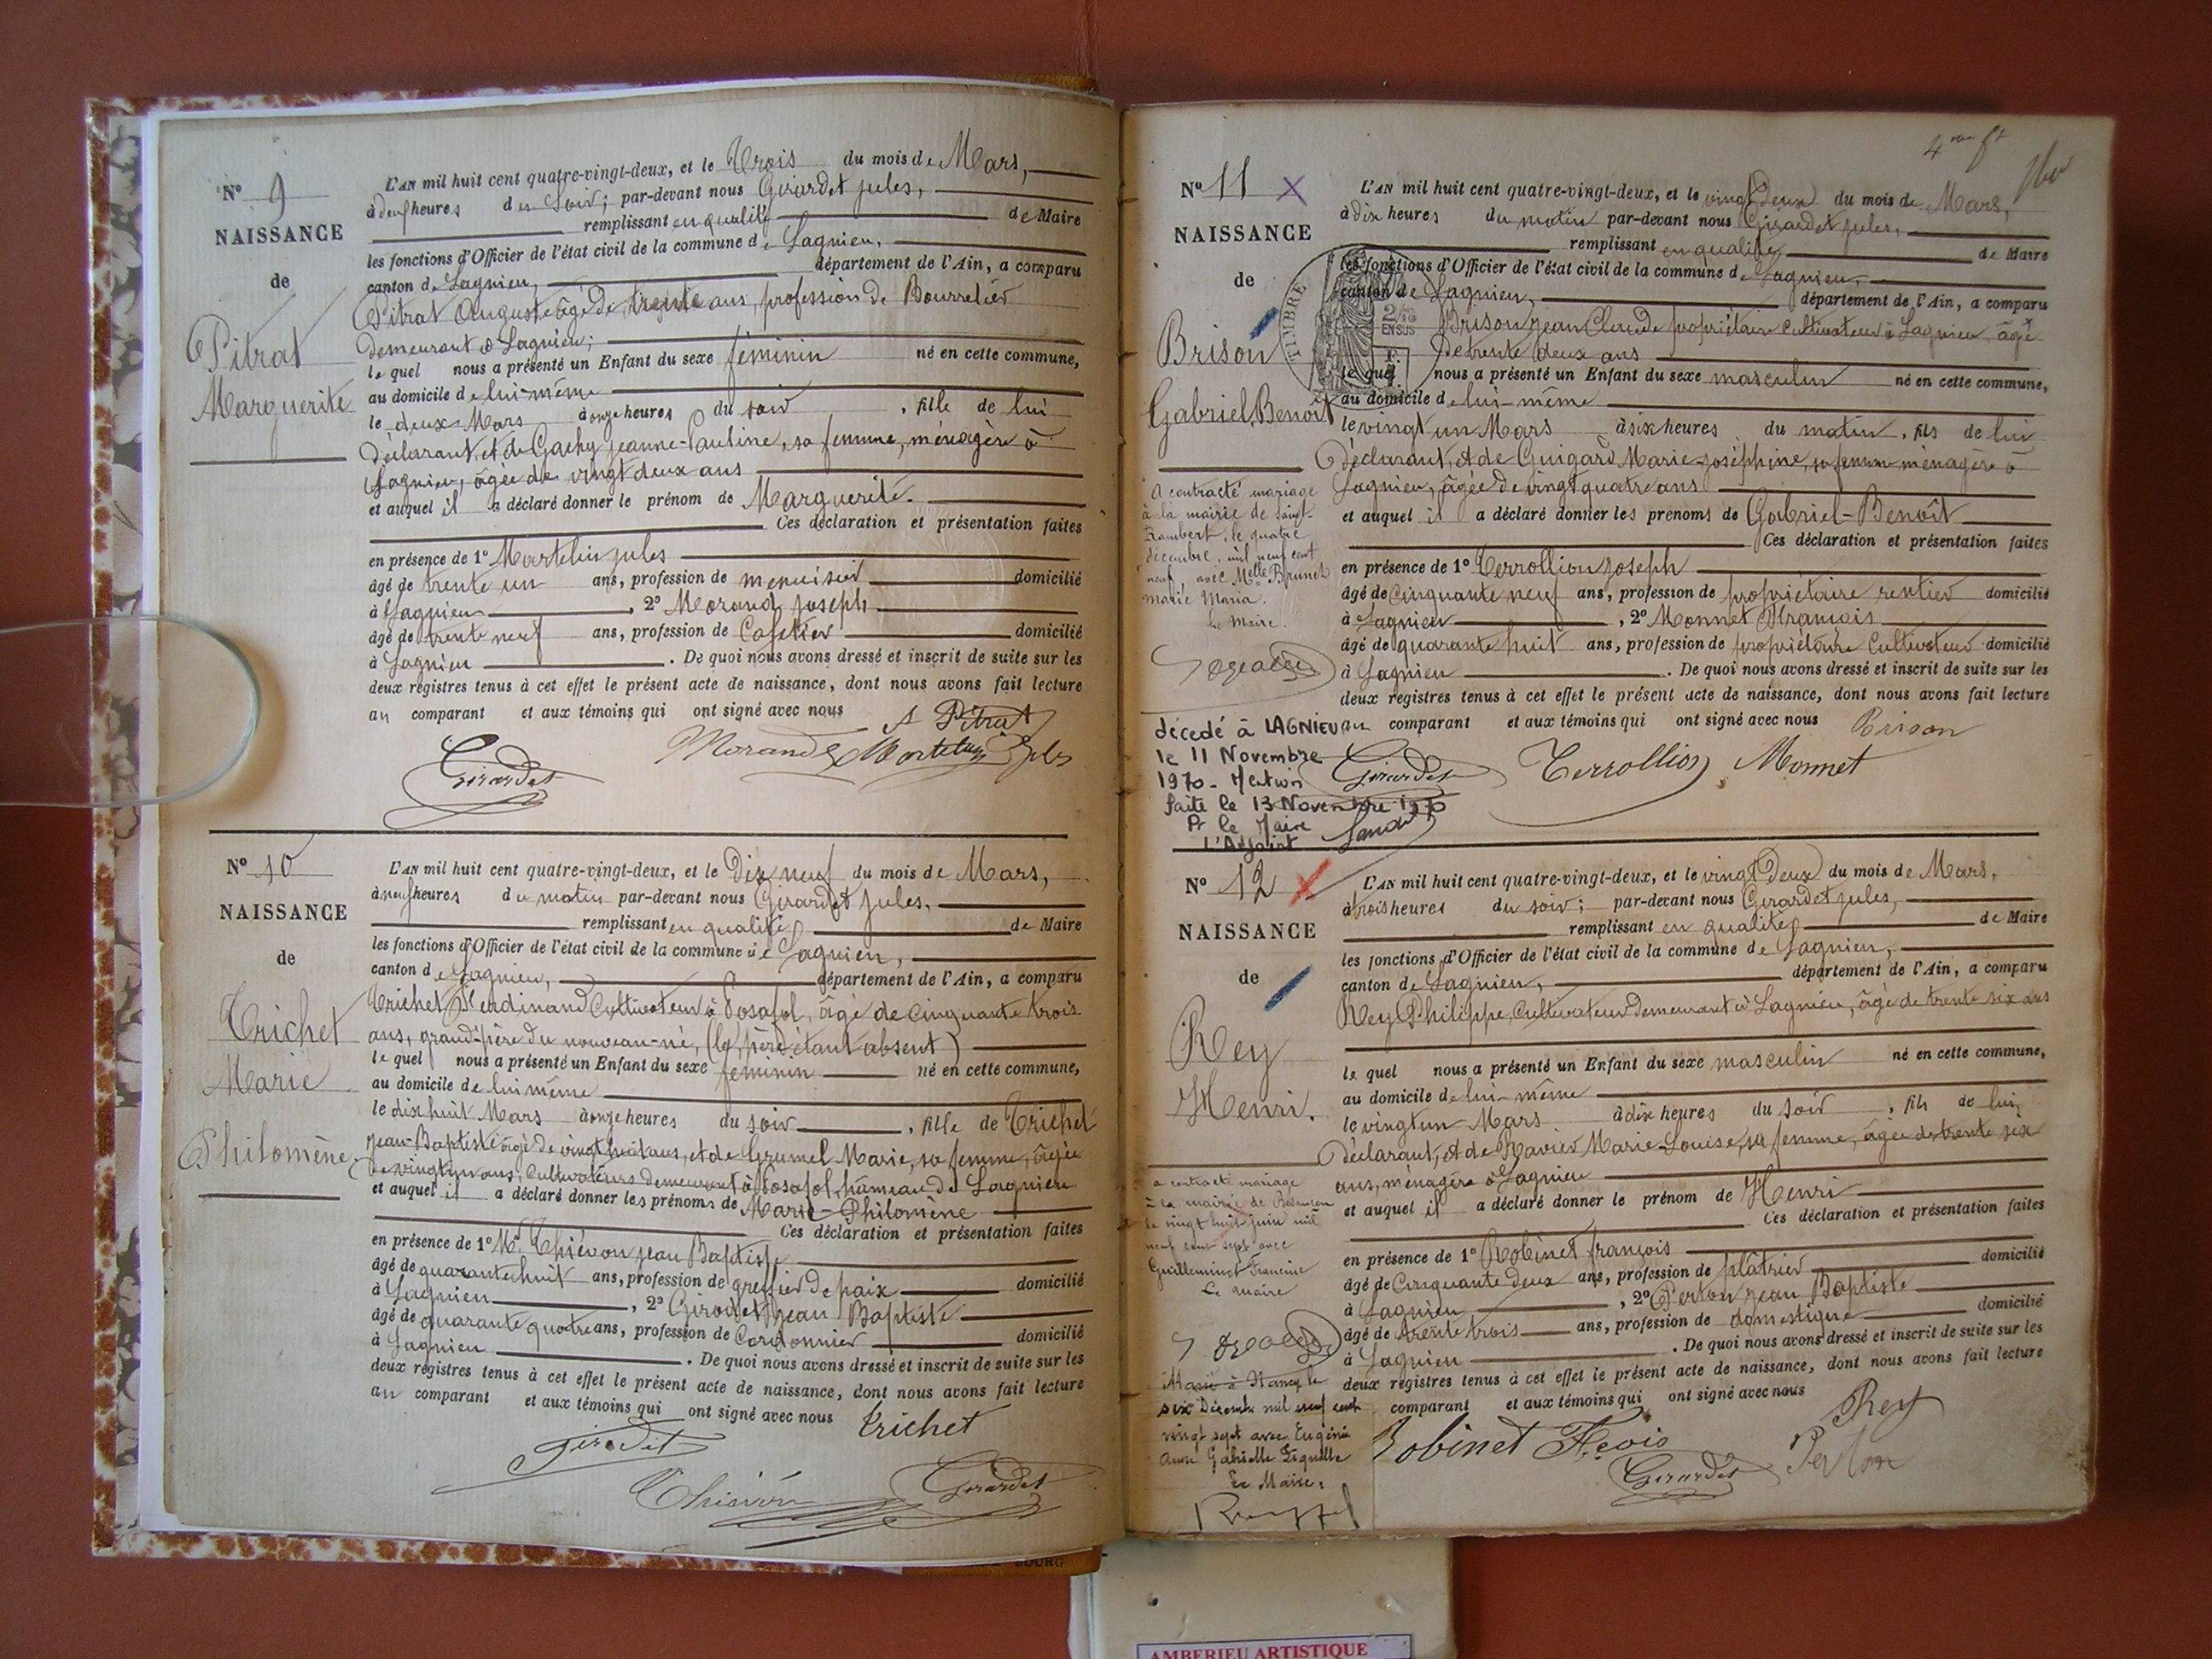 Nº 9
NAISSANCE
de
Pitrat
Marguerite
L'AN mil huit cent quatre-vingt-deux, et le Trois du mois de Mars,
à deux heures du Soir; par-devant nous Girardet jules,
remplissant en qualité de Maire
les fonctions d'Officier de l'état civil de la commune de Lagnieu,
canton de Lagnieu, département de l'Ain, a comparu
Pitrat Auguste âgé de trente ans, profession de Bourrelier
demeurant à Lagnieu;
lequel nous a présenté un Enfant du sexe féminin né en cette commune,
au domicile de lui-même
le deux Mars à onze heures du soir, fille de lui
déclarant, et de Gachy Jeanne-Pauline, sa femme, ménagère à
Lagnieu, âgée de vingt deux ans
et auquel il a déclaré donner le prénom de Marguerite.
Ces déclaration et présentation faites
en présence de 1º Martelin jules
âgé de trente un ans, profession de menuisier domicilié
à Lagnieu, 2º Morand Joseph
âgé de trente neuf ans, profession de Cafetier domicilié
à Lagnieu. De quoi nous avons dressé et inscrit de suite sur les
deux registres tenus à cet effet le présent acte de naissance, dont nous avons fait lecture
au comparant et aux témoins qui ont signé avec nous
A Pitrat
Morand Martelin Jules
Girardet
Nº 10
NAISSANCE
de
Trichet
Marie
Philomène
L'AN mil huit cent quatre-vingt-deux, et le Dix neuf du mois de Mars,
à neuf heures du matin par-devant nous Girardet jules,
remplissant en qualité de Maire
les fonctions d'Officier de l'état civil de la commune de Lagnieu,
canton de Lagnieu, département de l'Ain, a comparu
Trichet Ferdinand Cultivateur à Posafol, âgé de Cinquante trois
ans, grand-père du nouveau-né, (le père étant absent)
lequel nous a présenté un Enfant du sexe féminin né en cette commune,
au domicile de lui même
le dix huit Mars à onze heures du soir, fille de Trichet
Jean-Baptiste âgé de vingt huit ans, et de Grumel Marie, sa femme, âgée
de vingt un ans, Cultivateurs demeurant à Posafol, hameau de Lagnieu
et auquel il a déclaré donner les prénoms de Marie-Philomène
Ces déclaration et présentation faites
en présence de 1º Mr Thiévon jean Baptiste
âgé de quarante huit ans, profession de greffier de paix domicilié
à Lagnieu, 2º Girodet Jean Baptiste
âgé de quarante quatre ans, profession de Cordonnier domicilié
à Lagnieu. De quoi nous avons dressé et inscrit de suite sur les
deux registres tenus à cet effet le présent acte de naissance, dont nous avons fait lecture
au comparant et aux témoins qui ont signé avec nous
Trichet
Girodet
Thiévon Girardet
4me ft
Nº 11
NAISSANCE
de
Brison
Gabriel, Benoît
TIMBRE
EN SUS
L'AN mil huit cent quatre-vingt-deux, et le vingt Deux du mois de Mars,
à dix heures du matin par-devant nous Girardet jules,
remplissant en qualité de Maire
les fonctions d'Officier de l'état civil de la commune de Lagnieu,
canton de Lagnieu, département de l'Ain, a comparu
Brison jean Claude propriétaire Cultivateur à Lagnieu âgé
de trente deux ans
lequel nous a présenté un Enfant du sexe masculin né en cette commune,
au domicile de lui-même
le vingt un Mars à six heures du matin, fils de lui
déclarant, et de Guigard Marie-joséphine, sa femme ménagère à
Lagnieu, âgée de vingt quatre ans
et auquel il a déclaré donner les prénoms de Gabriel-Benoît
Ces déclaration et présentation faites
en présence de 1º Terrollion joseph
âgé de Cinquante neuf ans, profession de propriétaire rentier domicilié
à Lagnieu, 2º Monnet François
âgé de quarante huit ans, profession de propriétaire Cultivateur domicilié
à Lagnieu. De quoi nous avons dressé et inscrit de suite sur les
deux registres tenus à cet effet le présent acte de naissance, dont nous avons fait lecture
au comparant et aux témoins qui ont signé avec nous
Brison
Girardet Terrollion Monnet
A contracté mariage
à la mairie de Saint-
Rambert, le quatre
décembre, mil neuf cent
neuf, avec Melle Brunet
marie Maria.
Le Maire.
décédé à LAGNIEU
le 11 Novembre
1970 - Mention
faite le 13 Novembre 1970
Pr le Maire
L'Adjoint
Nº 12
NAISSANCE
de
Rey
Henri.
L'AN mil huit cent quatre-vingt-deux, et le vingt Deux du mois de Mars,
à trois heures du soir; par-devant nous Girardet jules,
remplissant en qualité de Maire
les fonctions d'Officier de l'état civil de la commune de Lagnieu,
canton de Lagnieu, département de l'Ain, a comparu
Rey Philippe, Cultivateur demeurant à Lagnieu, âgé de trente six ans
lequel nous a présenté un Enfant du sexe masculin né en cette commune,
au domicile de lui-même
le vingt un Mars à dix heures du soir, fils de lui
déclarant, et de Ravier Marie-Louise, sa femme, âgée de trente six
ans, ménagère à Lagnieu
et auquel il a déclaré donner le prénom de Henri
Ces déclaration et présentation faites
en présence de 1º Robinet françois
âgé de Cinquante deux ans, profession de plâtrier domicilié
à Lagnieu, 2º Perton jean Baptiste
âgé de trente trois ans, profession de domestique domicilié
à Lagnieu. De quoi nous avons dressé et inscrit de suite sur les
deux registres tenus à cet effet le présent acte de naissance, dont nous avons fait lecture
comparant et aux témoins qui ont signé avec nous
Rey
Robinet Fcois Perton
Girardet
a contracté mariage
à la mairie de Besançon
le vingt huit juin mil
neuf cent sept avec
Guilleminot Francine
Le Maire
Marié à Nancy le
six Décembre mil neuf cent
vingt sept avec Eugénie
Gabrielle
Le Maire:
BOURG
AMBERIEU ARTISTIQUE